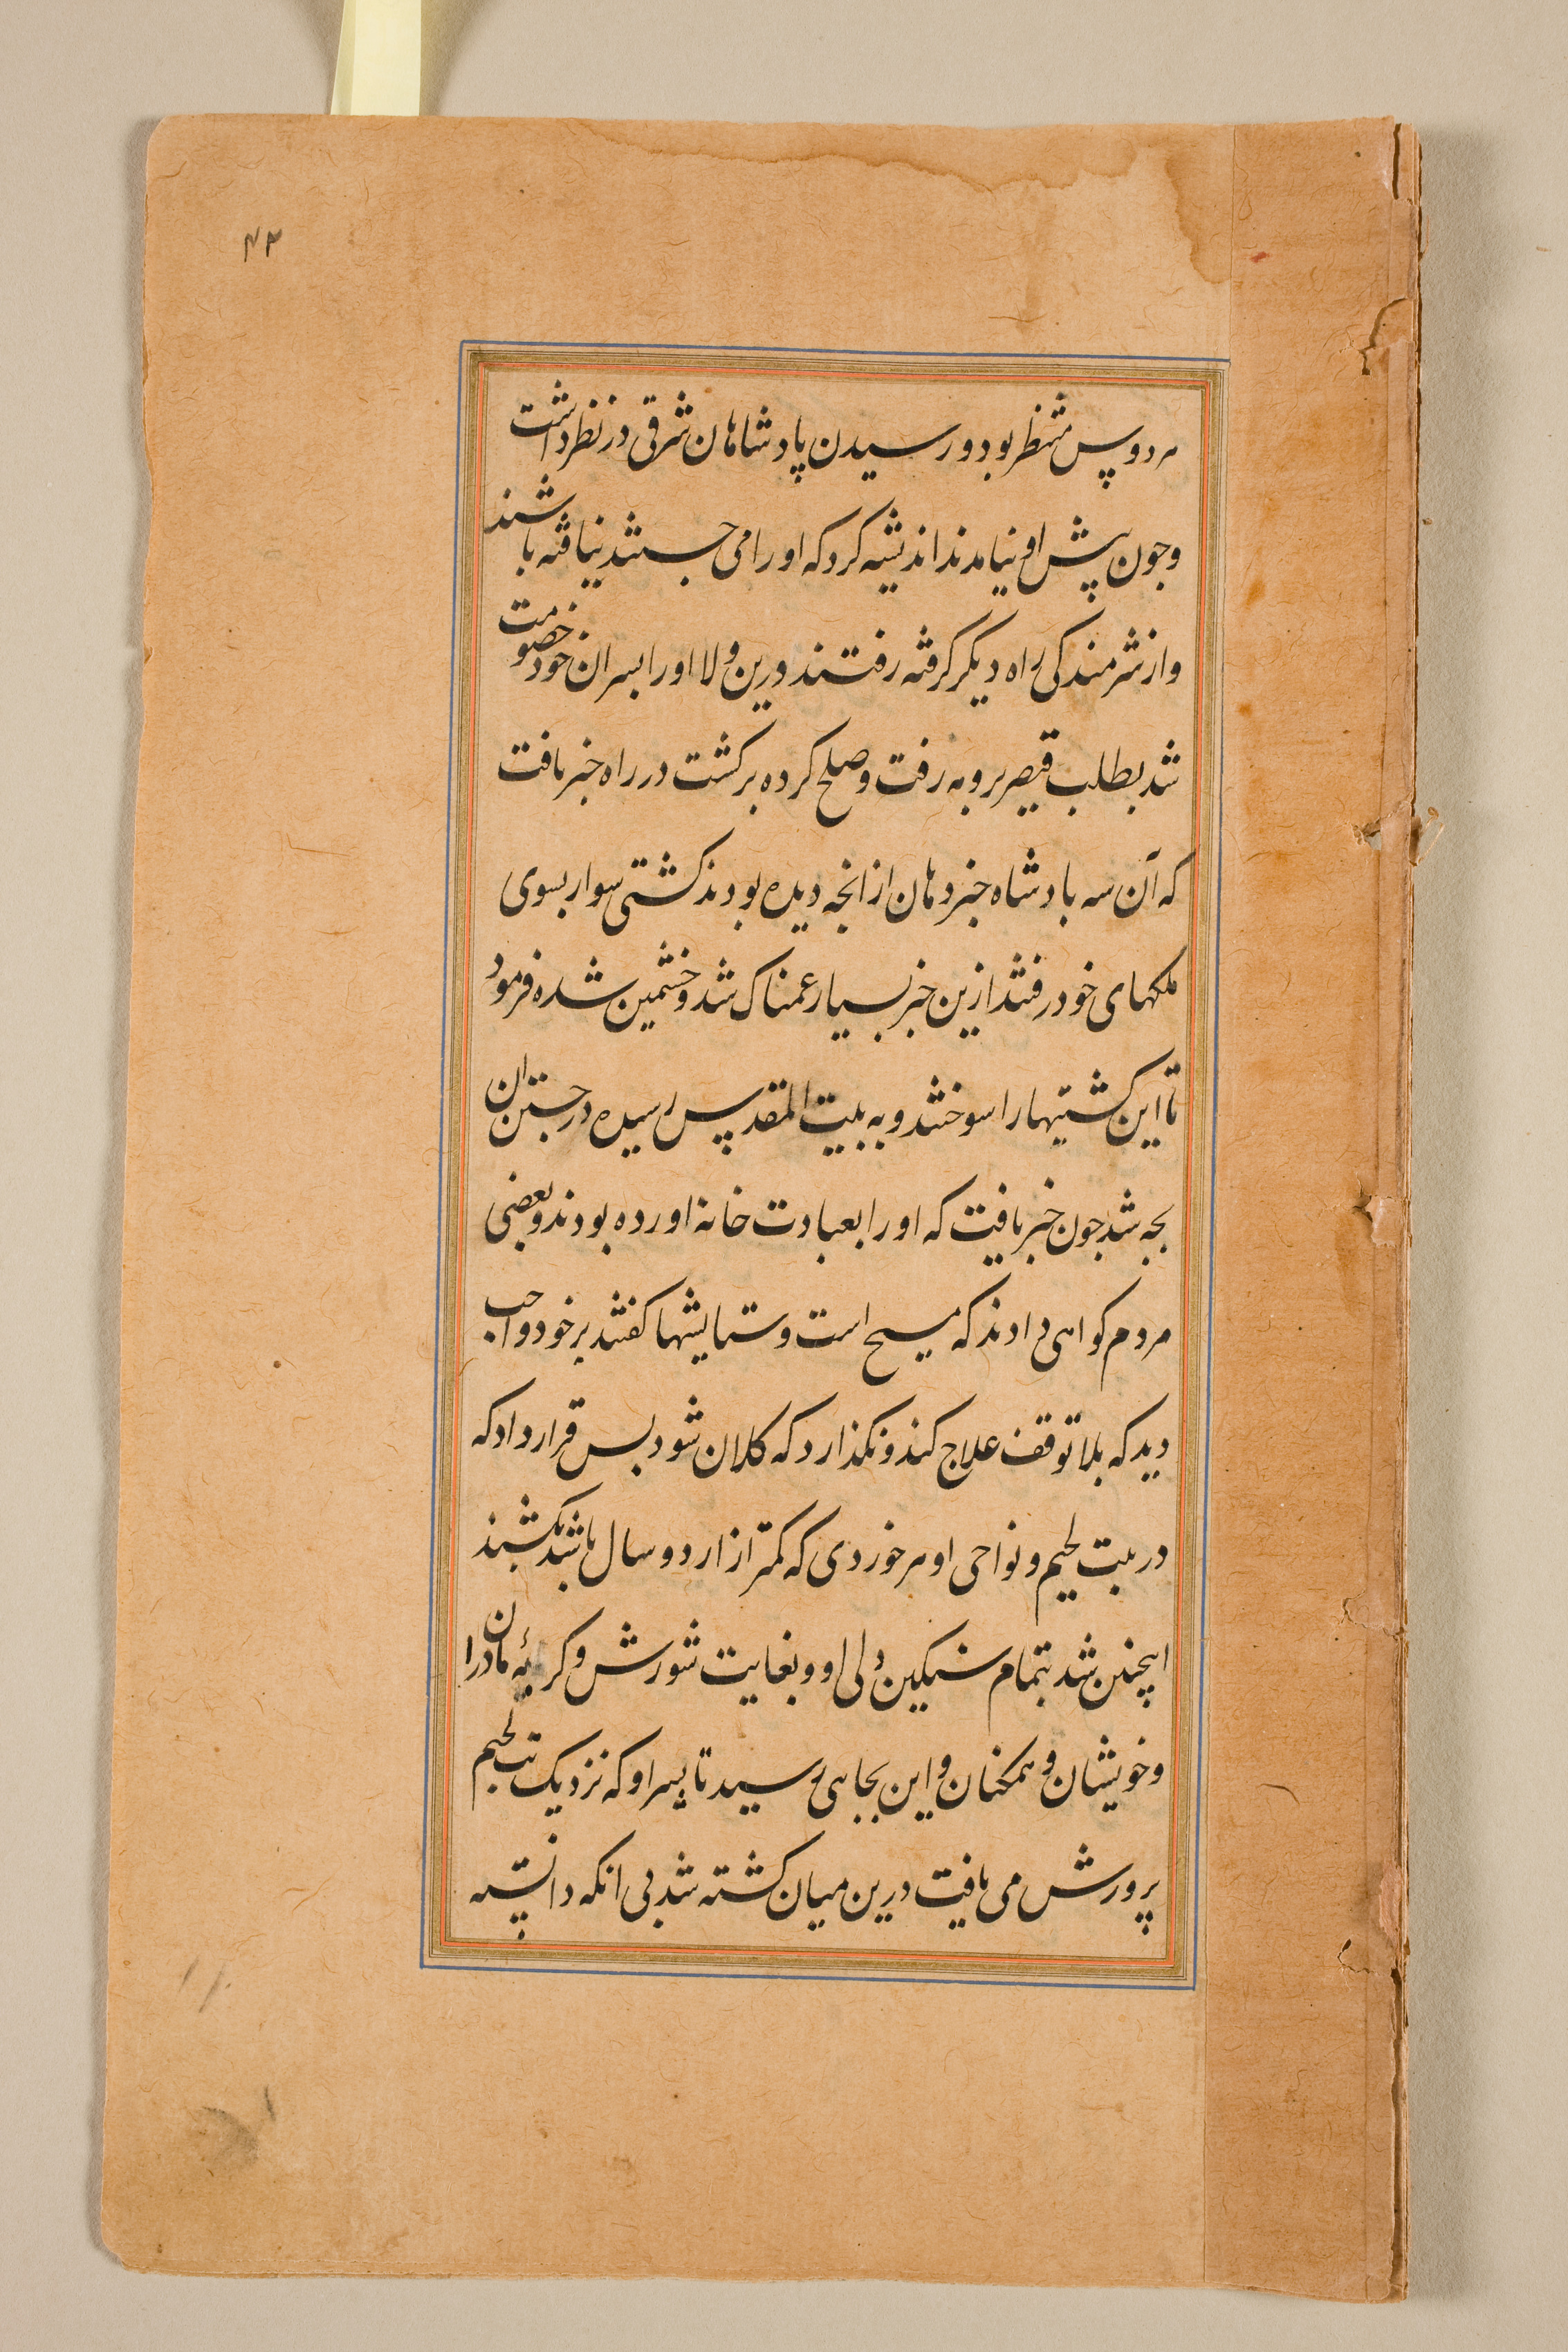 ۴۳
هردوپس منتظر بود و رسیدن پادشاهان شرقی در نظر داشت
وچون پیش او نیامدند اندیشه کرد که او را می جستند نیافته باشند
واز شرمندکی راه دیکر کرفته رفتند درین ولا او را بسران خود خصومت
شد بطلب قیصر بروبه رفت و صلح کرده برکشت در راه خبر یافت
که آن سه بادشاه خبر دهان از انجه دیده بودند کشتی سوار بسوی
ملکهای خود رفتند ازین خبر بسیار غمناک شد و خشمین شده فرمود
تا این کشتیها را سوختند و به بیت المقدپس رسیده در جستن ان
بجه شد چون خبر یافت که او را بعبادت خانه اورده بودند و بعضی
مردم کواهی دادند که مسیح است و ستایشها کفتند بر خود واجب
دید که بلا توقف علاج کند و نکذارد که کلان شود بس قرار داد که
در بیت لحیم و نواحی او هر خوردی که کمتر از دو سال باشد بکشند
اینچنین شد بتمام سنکین دلی او و بغایت شورش و کریهٔ مادران
وخویشان و همکنان و این بجاهی رسید تا پسر او که نزدیک بیت لحیم
پرورش می یافت درین میان کشته شد بی انکه دانسته